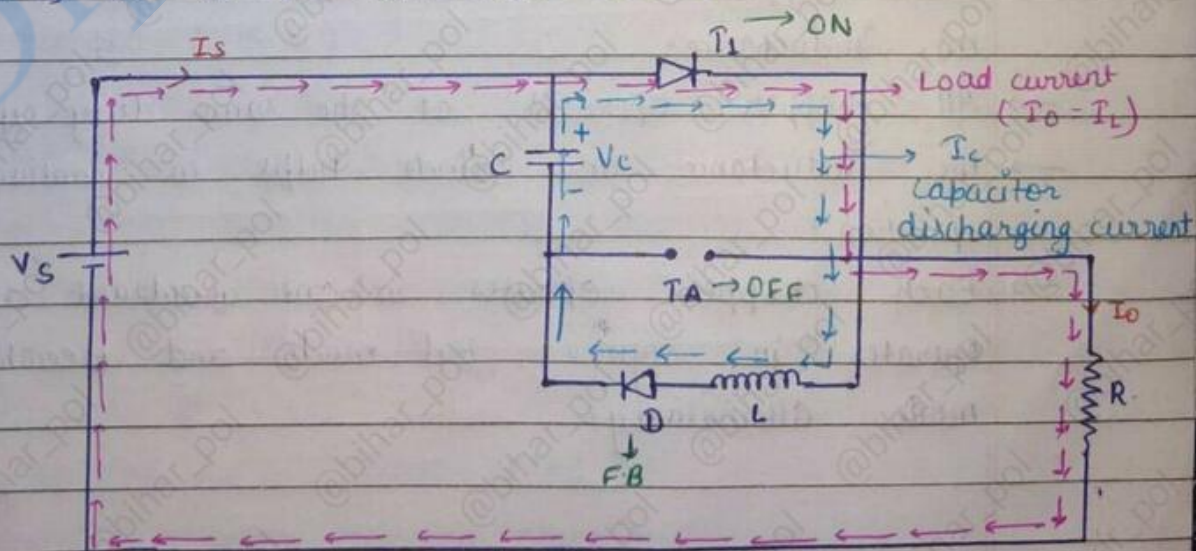 Is
T1 → ON
Load current
(Io = IL)
C
+
Vc
-
→ Ic
Capacitor
discharging current
Vs
TA → OFF
Io
R.
D
L
F.B
@bihar_pol